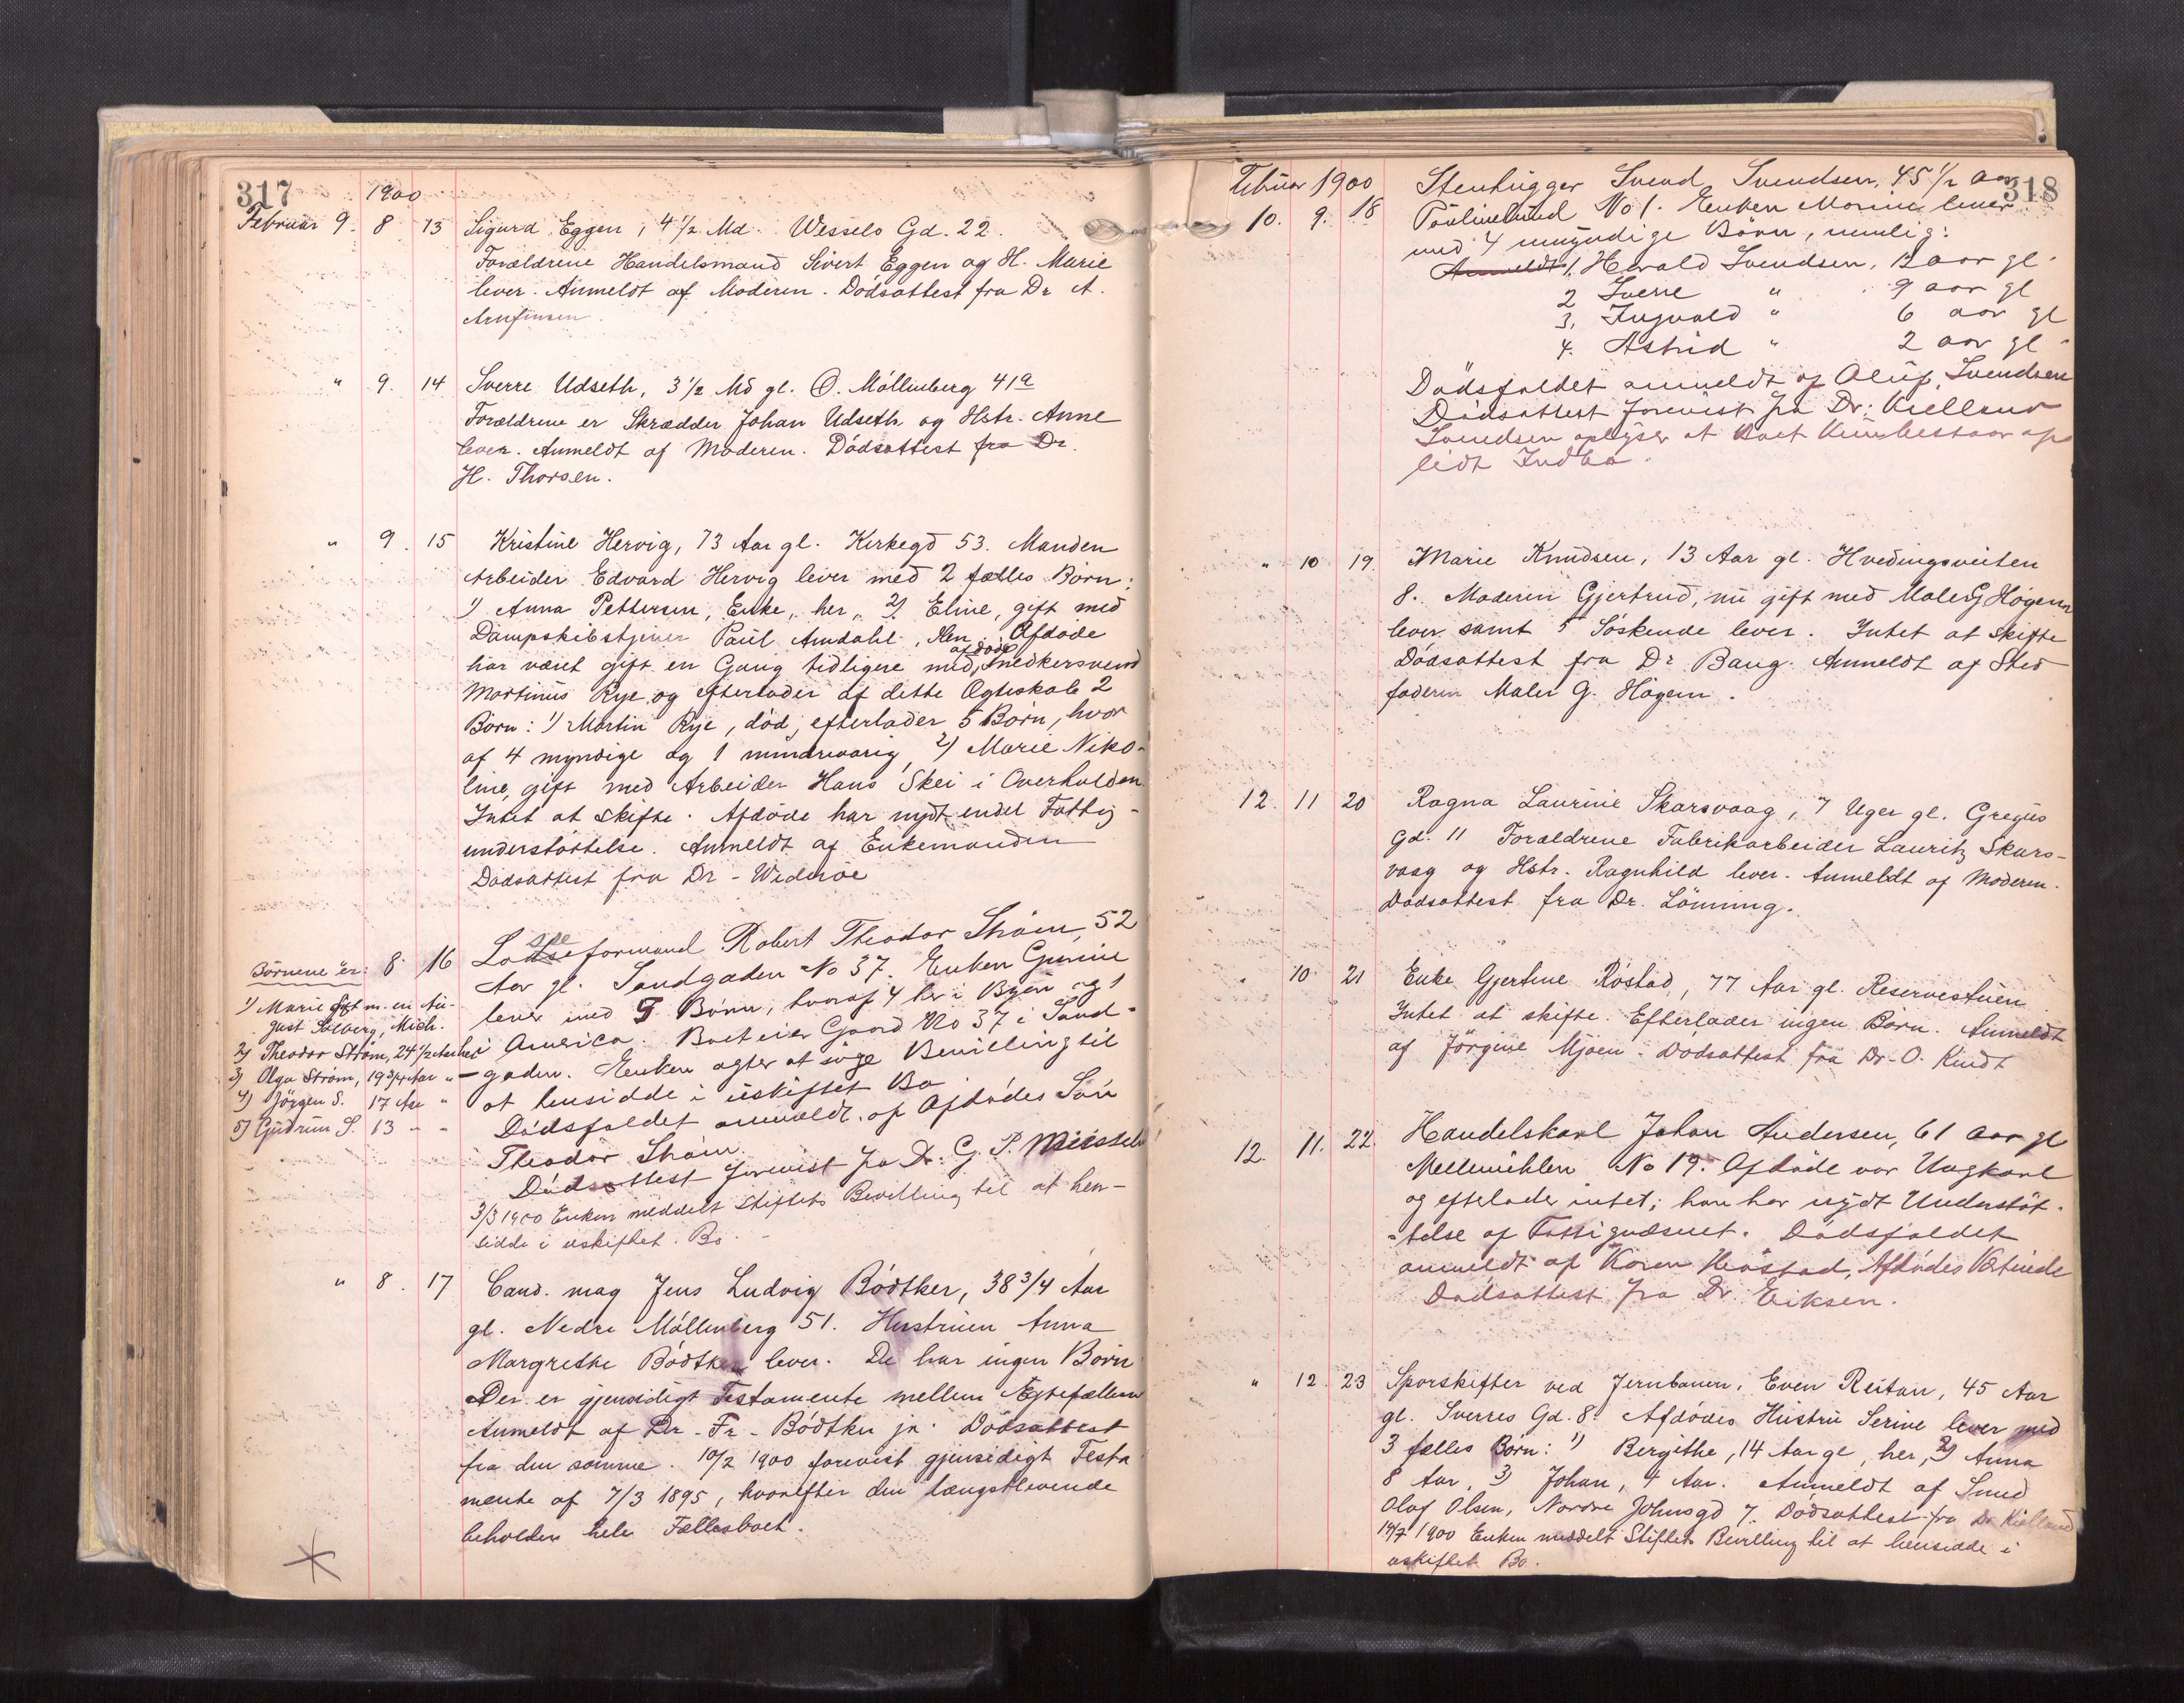 317
1900
Februar 9. 8 13 Sigurd Eggen, 4 1/2 Md. Wessels Gd. 22.
Forældrene Handelsmand Sivert Eggen og H. Marie
lever. Anmeldt af Moderen. Dödsattest fra Dr A.
Arnfinsen.
" 9. 14 Sverre Udseth, 3 1/2 Md gl. Ö. Möllenberg 41a
Forældrene er Skrædder Johan Udseth og Hstr. Anne
lever. Anmeldt af Moderen. Dödsattest fra Dr.
H. Thorsen.
" 9. 15 Kristine Hervig, 73 Aar gl. Kirkegd 53. Manden
Arbeider Edvard Hervig lever med 2 fælles Börn:
1) Anna Pettersen, Enke, her, 2) Eline, gift med
Dampskibstjener Paul Amdahl. Afdöde
har været gift en Gang tidligere med afdöde Snedkersvend
Martinus Rye og efterlader af dette Ægteskab 2
Börn: 1) Martin Rye, död, efterlader 5 Börn, hvor
af 4 myndige og 1 mindreaarig, 2) Marie Niko-
line, gift med Arbeider Hans Skei i Overhalden.
Intet at skifte. Afdöde har nydt endel Fattig-
understöttelse. Anmeldt af Enkemanden
Dödsattest fra Dr. Wideröe
8. 16 Losseformand Robert Theodor Ström, 52
Aar gl. Sandgaden No 37. Enken Gurine
lever med 5 Börn, hvoraf 4 her i Byen og 1
i America. Boet eier Gaard No 37 i Sand-
gaden. Enken agter at söge Bevilling til
at hensidde i uskiftet Bo.
Dödsfaldet anmeldt af Afdödes Sön
Theodor Ström
Dödsattest forevist fra Dr. G. P.
3/3 1900 Enken meddelt Stiftets Bevilling til at hen-
sidde i uskiftet Bo.
Börnene er:
1) Marie gift m. en Au-
gust Solberg, Mich.
2) Theodor Ström, 24 1/2 Aar her
3) Olga Ström, 19 3/4 Aar "
4) Jörgen S. 17 Aar "
5) Gudrun S. 13 " "
" 8. 17 Cand. mag Jens Ludvig Bödtker, 38 3/4 Aar
gl. Nedre Möllenberg 51. Hustruen Anna
Margrethe Bödtker lever. De har ingen Börn
Der er gjensidigt Testamente mellem Ægtefællerne
Anmeldt af Dr. Fr. Bödtker jr. Dödsattest
fra den samme. 10/2 1900 forevist gjensidigt Testa
mente af 7/3 1895, hvorefter den længstlevende
beholder hele Fællesboet.
318
Februar 1900
10. 9. 18 Stenhugger Svend Svendsen, 45 1/2 aar
Paulinelund No 1. Enken Monine lever
med 4 umyndige Börn, nemlig:
Anmeldt 1. Harald Svendsen, 12 aar gl.
2 Sverre " 9 aar gl
3, Ingvald " 6 aar gl
4. Astrid " 2 aar gl
Dödsfaldet anmeldt af Oluf Svendsen
Dödsattest forevist fra Dr. Kielland
Svendsen oplyser at Boet kun bestaar af
lidt Indbo.
" 10 19. Marie Knudsen, 13 Aar gl. Hvedingsveiten
8. Moderen Gjertrud, nu gift med Maler G Högem
lever samt 5 Söskende lever. Intet at skifte
Dödsattest fra Dr Bang. Anmeldt af Sted
faderen Maler G. Högem.
12. 11 20 Ragna Laurine Skarsvaag, 7 Uger gl. Gregus
Gd. 11 Forældrene Fabrikarbeider Lauritz Skars-
vaag og Hstr. Ragnhild lever. Anmeldt af Moderen.
Dödsattest fra Dr. Lönning.
" 10. 21 Enke Gjertine Röstad, 77 Aar gl. Reservestuen
Intet at skifte. Efterlader ingen Börn. Anmeldt
af Jörgine Mjoen. Dödsattest fra Dr. O. Kindt
12. 11. 22. Handelskarl Johan Andersen, 61 aar gl
Mellemühlen No 19. Afdöde var Ungkarl
og efterlader intet; han har nydt Understöt-
telse af Fattigvæsnet. Dödsfaldet
anmeldt af Karen, Afdödes Værtinde
Dödsattest fra Dr Eriksen.
" 12. 23 Sporskifter ved Jernbanen, Even Reitan, 45 Aar
gl. Sverres Gd. 8. Afdödes Hustru Serine lever med
3 fælles Börn: 1) Bergithe, 14 Aar gl, her, 2) Anna
8 Aar, 3) Johan, 4 Aar. Anmeldt af Smed
Olaf Olsen, Nordre Johnsgd 7. Dödsattest fra Dr Kielland
14/7 1900 Enken meddelt Stiftets Bevilling til at hensidde i
uskiftet Bo.